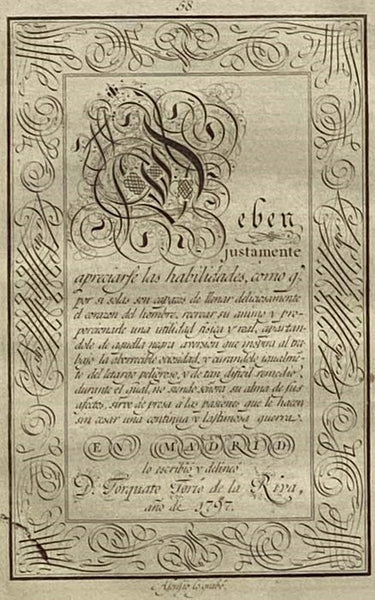 58
Deben
justamente
apreciarse las habilidades, como q.ͤ
por si solas son capaces de llenar deliciosamente
el corazon del hombre, recrear su animo y pro-
porcionarle una utilidad fisica y real, apartan-
dole de aquella negra aversion que inspira al tra-
bajo la aborrecible ociosidad, y curandole igualm.ͭͤ
te del letargo peligroso, y de tan dificil remedio,
durante el qual, no siendo señora su alma de sus
afectos, sirve de presa á las pasiones que le hacen
sin cesar una continua y lastimosa guerra.
EN MADRID
lo escribió y delineó
D. Torquato Torío de la Riva,
año de 1797.
Asensio lo grabó.